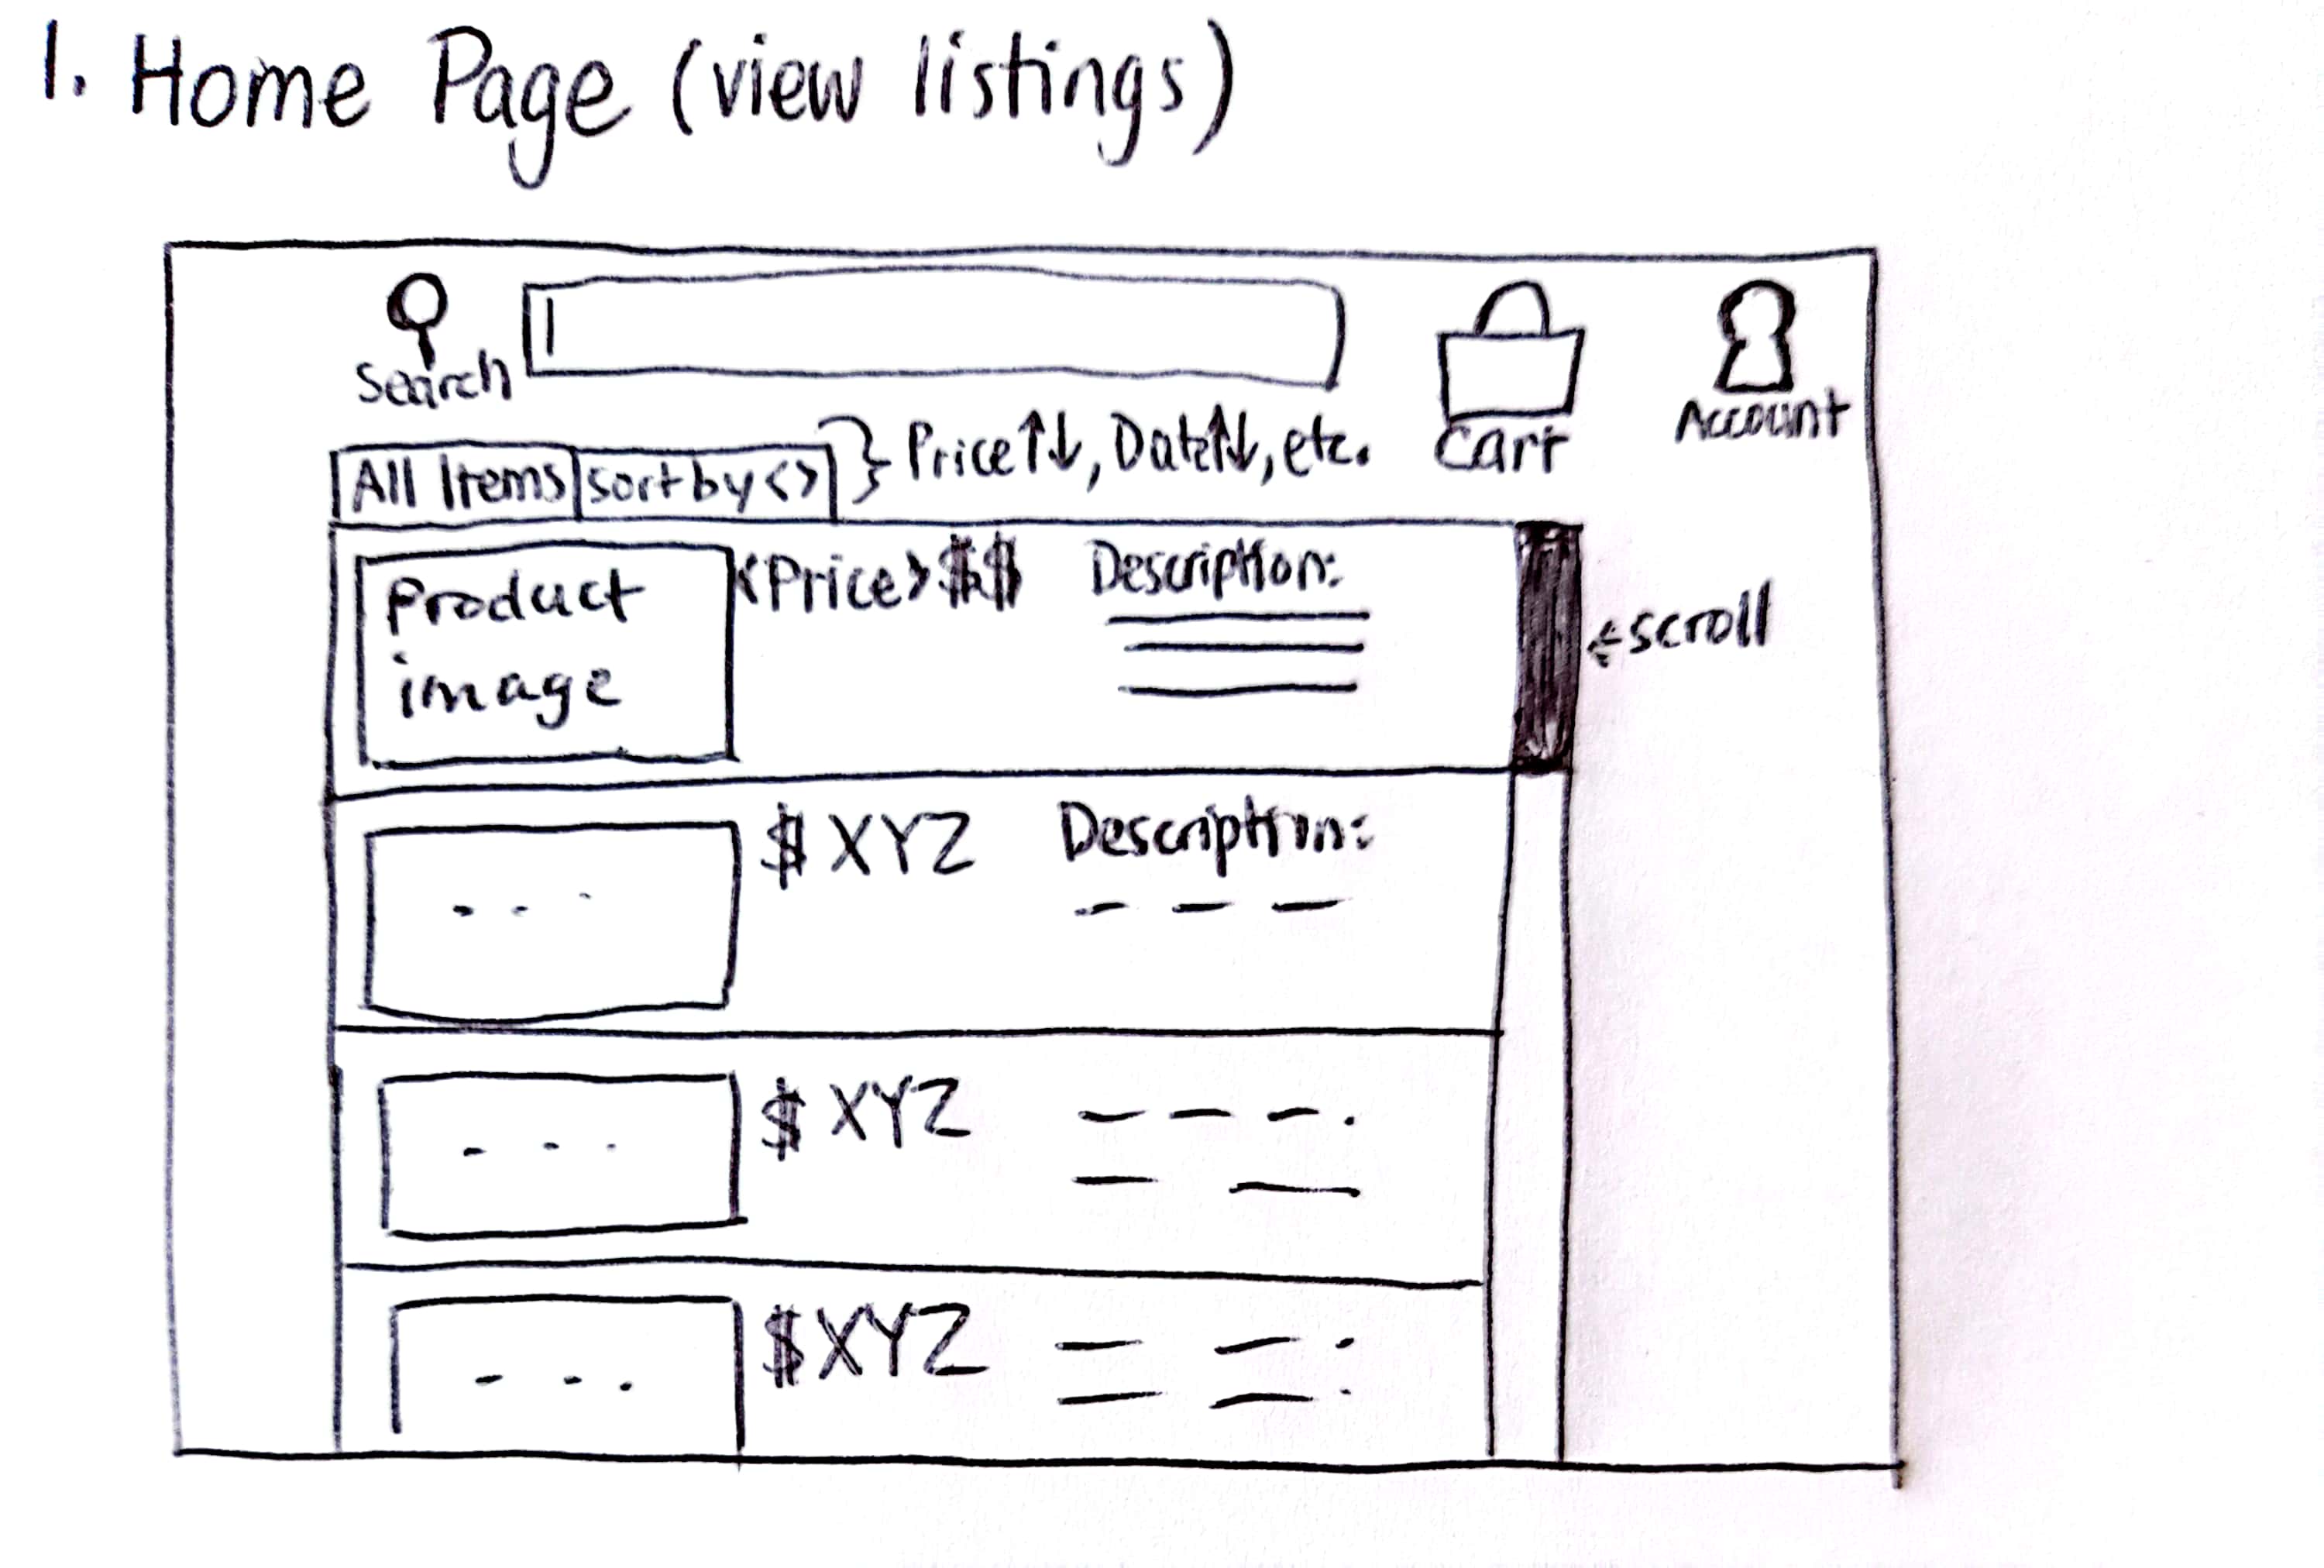 1. Home Page (view listings)
Search
Cart
Account
All Items
sort by <>
} Price↑↓, Date↑↓, etc.
Product
image
<Price> $$
Description:
←scroll
$ XYZ
Description:
$ XYZ
$ XYZ